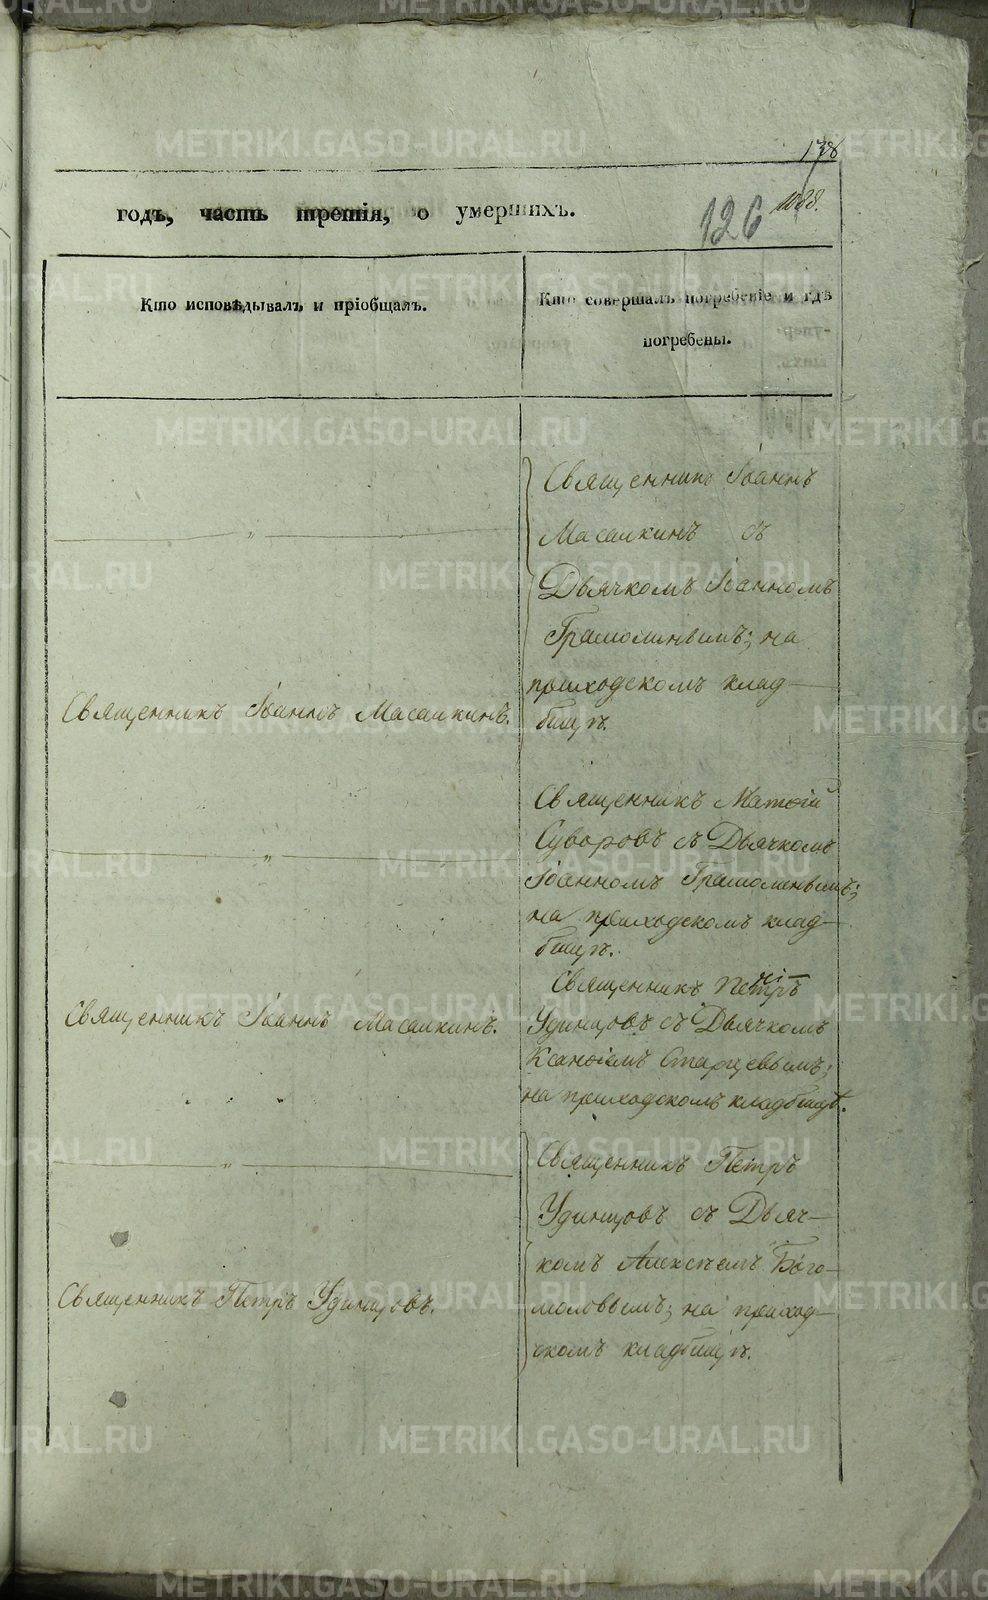 138
126
годъ, часть третія, о умершихъ.
Кто исповѣдывалъ и пріобщалъ.
Кто совершалъ погребеніе и гдѣ
погребены.
Священникъ Іоаннъ
Масалкинъ съ
Дьячкомъ Іоанномъ
на
приходскомъ клад-
бищѣ.
Священникъ Іоаннъ Масалкинъ.
Священникъ Матѳій
Суворовъ съ Дьячкомъ
Іоанномъ
на приходскомъ клад-
бищѣ.
Священникъ Петръ
Удинцовъ съ Дьячкомъ
Ксанѳіемъ Старцевымъ;
на приходскомъ кладбищѣ.
Священникъ Іоаннъ Масалкинъ.
Священникъ Петръ
Удинцовъ съ Дьяч-
комъ Алексѣемъ Бого-
моловымъ; на приход-
скомъ кладбищѣ.
Священникъ Петръ Удинцовъ.
METRIKI.GASO-URAL.RU